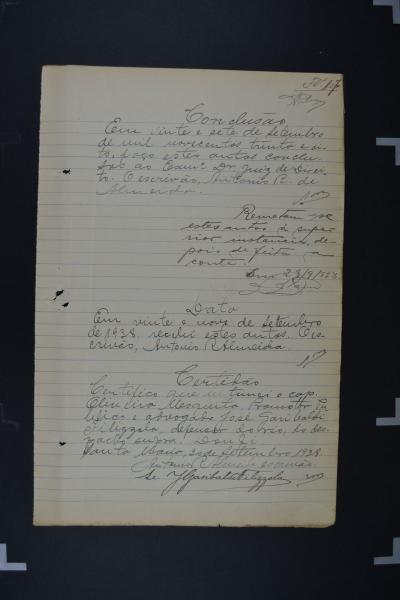 Fl 17
Conclusão
Em vinte e sete de Setembro
de mil novecentos trinta e oi-
to, faço estes autos conclu-
sos ao Exmº Dr. Juiz de Direi-
to. O escrivão, Antonio R. de
Almeida.
Remetam-se
estes autos á supe-
rior instancia, de-
pois de feita a
conta.
Data
Em vinte e nove de Setembro
de 1938 recebi estes autos. O es-
crivão, Antonio R. Almeida
Certidão
Certifico que intimei o cap.
Oliveira Mesquita, Promotor Pu-
blico e advogado José Garibaldi
Filizzola, defensor do réo, do des-
pacho supra. Dou fé.
Santa Maria, 30 de Setembro 1938.
escrivão.
J Garibaldi Filizzola